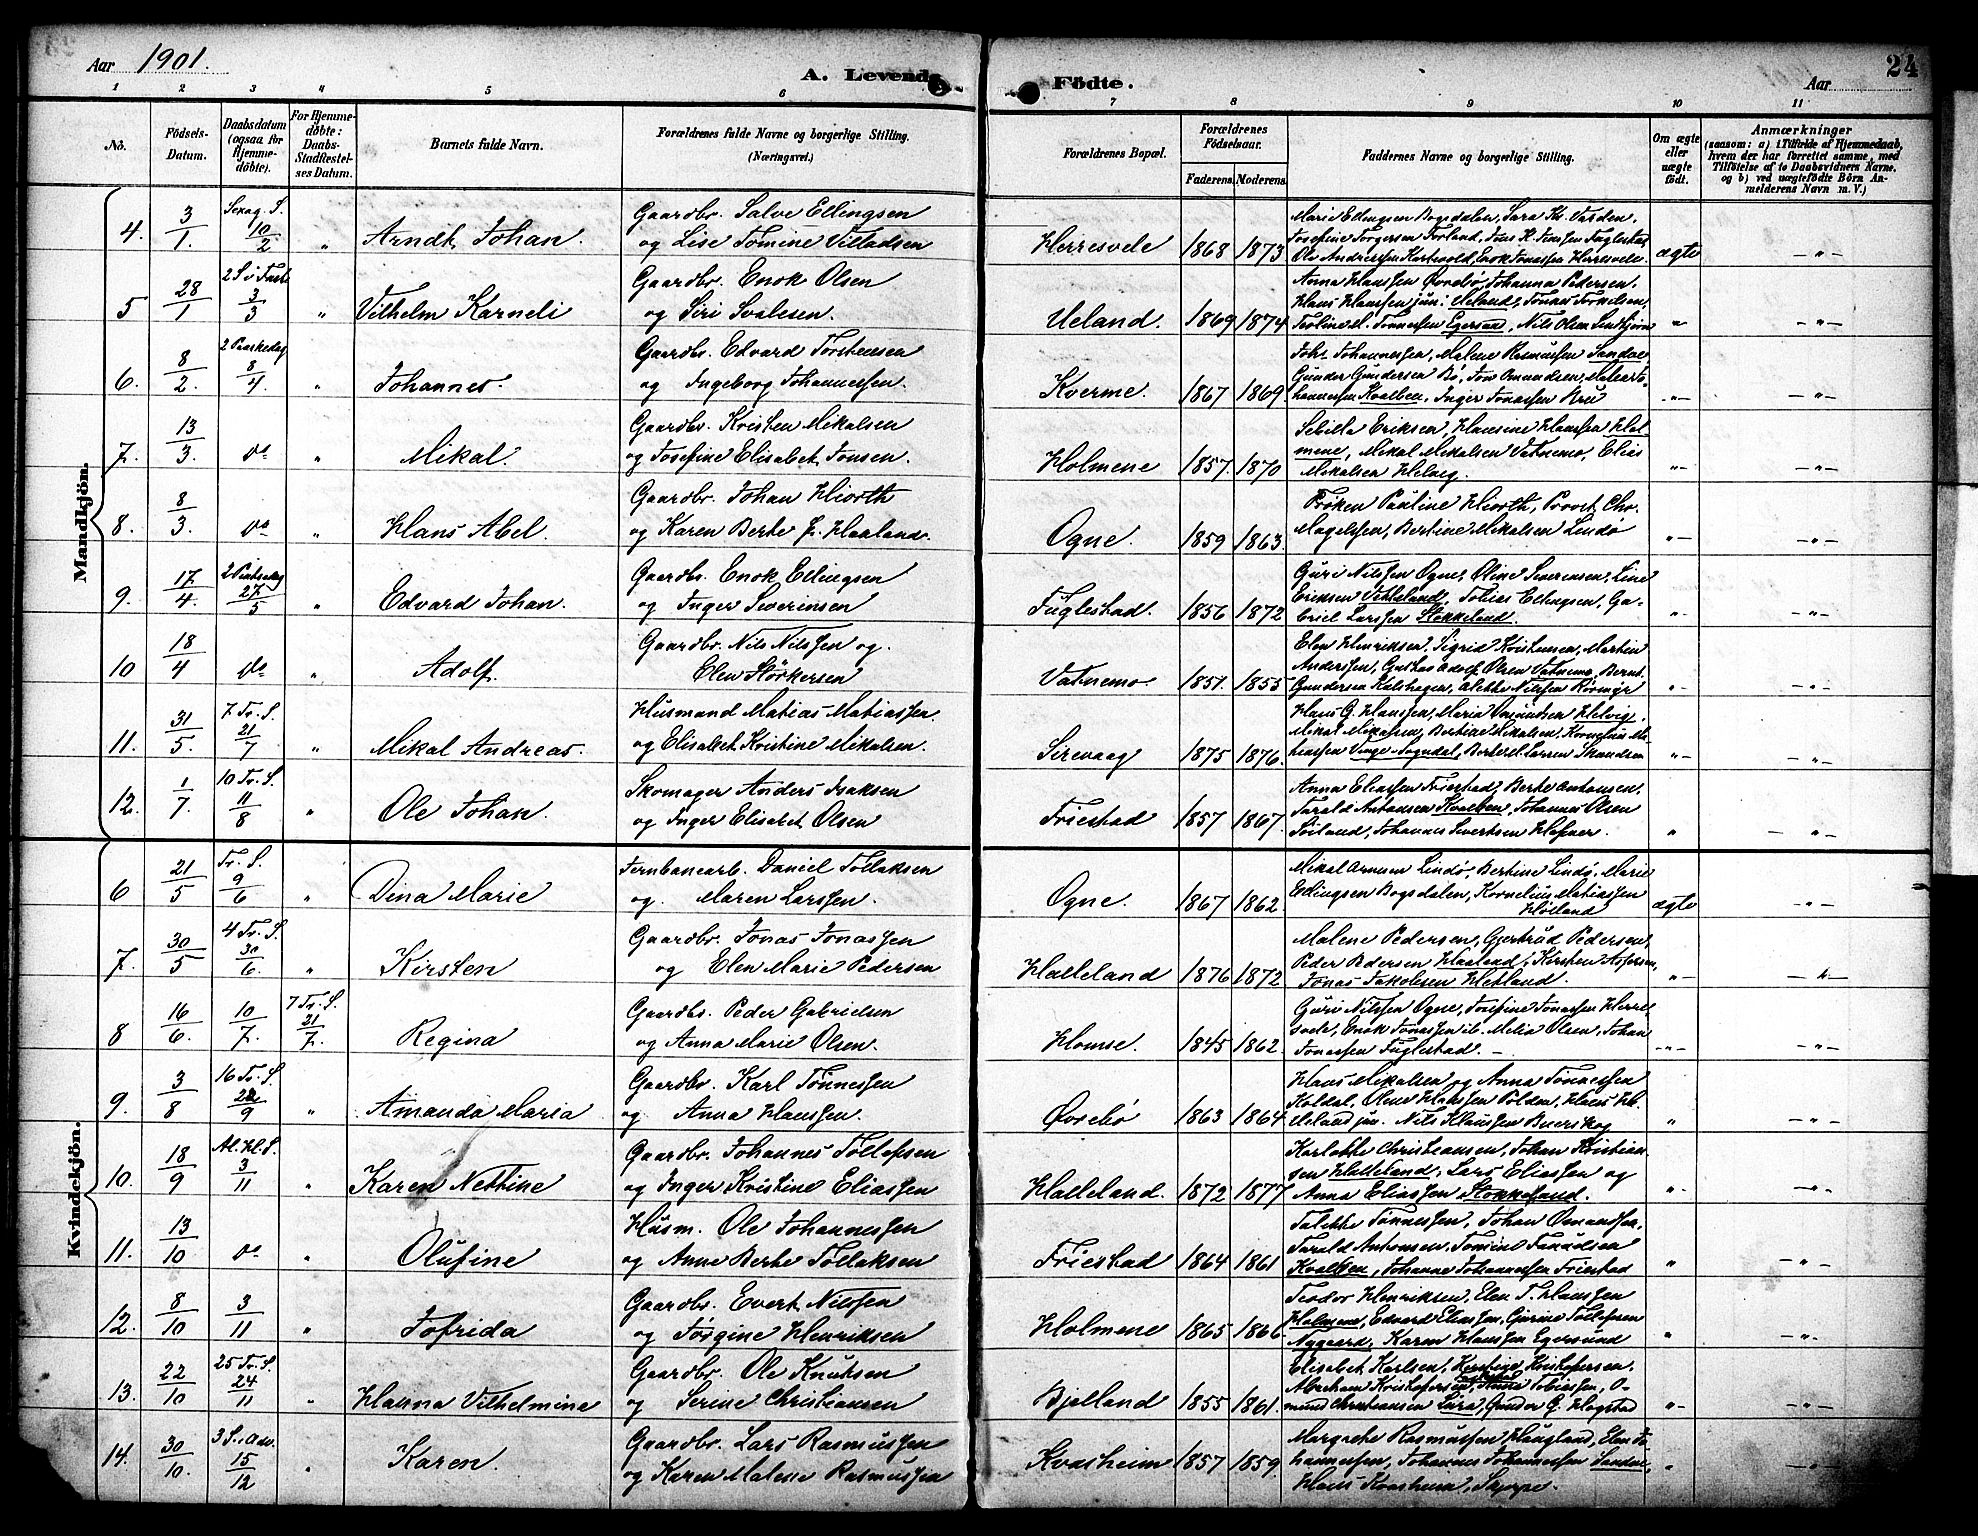 Aar 1901.
A. Levende Födte.
Aar
24
1 2 3 4 5 6 7 8 9 10 11
No.
Födsels-Datum.
Daabsdatum (ogsaa for Hjemmedöbte).
For Hjemmedöbte: Daabs-Stadfestelses Datum.
Barnets fulde Navn.
Forældrenes fulde Navne og borgerlige Stilling. (Næringsvei.)
Forældrenes Bopæl.
Forældrenes Födselsaar.
Faderens. Moderens.
Faddernes Navne og borgerlige Stilling.
Om ægte eller uægte födt.
Anmærkninger (saasom: a) i Tilfælde af Hjemmedaab, hvem der har forrettet samme, med Tilföielse af to Daabsvidners Navne, og b) ved uægtefödte Börn Anmelderens Navn m. V.)
Mandkjön.
4. 3/1. Sexag. S. 10/2 " Arndt Johan. Gaardbr. Salve Ellingsen
og Lise Tomine Villadsen Herresvele 1868 1873 ægte -"-
Marie Ellingsen Bogsdalen, Sara Kr. Varden,
Josefine Torgersen Forland, Jons K. Jonssen Fuglestad
Ole Andreassen Hertvold, Enok Jonassen Herresvele.
5 28/1 2 S. i Faste 3/3 " Vilhelm Karneli Gaardbr. Enok Olsen
og Siri Svalesen. Ueland. 1869 1874 " -"-
Anna Hanssen Övrebö, Johanna Pedersen,
Hans Hanssen jun. Ueland, Jonas Torkelsen
Tönnessen Egersun, Nils Olsen
6. 8/2. 2 Paaskedag 8/4. " Johannes. Gaardbr. Edvard Torstensen
og Ingeborg Johannessen. Kverme. 1867 1869 -"- -"-
Johs. Johannessen, Malene Rasmussen Sandve
Gunder Gundersen Bö, Jon Omundsen,
hannessen Kvalben, Inger Jonassen Bru
7. 13/3. do " Mikal. Gaardbr. Kristen Mikalsen
og Josefine Elisabet Jonsen. Holmene 1857. 1870 -"- -"-
Sebilla Eriksen, Hansine Hanssen Hol-
mene, Mikal Mikalsen Vatnemo, Elias
Mikalsen Helvig.
8. 8/3. do " Hans Abel. Gaardbr. Johan Hiorth
og Karen Berte f. Haaland. Ogne. 1859 1863. -"- -"-
Fröken Pauline Hiorth, Provst Chr.
Magelssen, Bertine Mikalsen Lindö
9. 17/4. 2 Pintsedag 27/5 " Edvard Johan. Gaardbr. Enok Ellingsen
og Inger Severinsen Fuglestad. 1856 1872 " -"-
Guri Nilssen Ogne, Oline Severinsen, Line
Eriksen Vetteland, Tobias Ellingsen, Ga-
briel Larssen Stokkeland.
10 18/4 do " Adolf. Gaardbr. Nils Nilssen og
Elen Störkersen Vatnemo. 1851. 1855 "- -"-
Elen Henriksen, Sigrid Kristensen, Martin
Anderssen, Gustav Adolf Olsen Vatnemo, Bernt
Gundersen Kalshagen, Alette Nilssen Rörmyr
11. 31/5. 7 Tr. S. 21/7 " Mikal Andreas. Husmand Matias Matiassen.
og Elisabet Kristine Mikalsen. Sirevaag 1875 1876. "- -"-
Hans G. Hanssen, Maria Omundsen Helvig,
Mikal Mikalsen, Bertine Mikalsen, Kornelius Ma-
tiassen Sogndal, Larsen
12. 1/7. 10 Tr. S. 11/8 " Ole Johan. Skomager Anders Isaksen
og Inger Elisabet Olsen Friestad 1857 1867. " -"-
Anna Eliassen Friestad, Berte Antonsen,
Tarald Antonsen Kvalben, Johannes Olsen
Söiland, Johannes Sivertsen Hafner.
Kvindekjön.
6 21/5 Tr. S. 9/6 " Dina Marie Jernbanearb. Daniel Tollaksen
og Maren Larssen. Ogne. 1867 1862. ægte -"-
Mikal Aresen Lindö, Bertine Lindö, Marie
Ellingsen Bogsdalen, Kornelius Matiassen
Hölland
7. 30/5 4 Tr. S. 30/6. " Kirsten Gaardbr. Jonas Jonassen
og Elen Marie Pedersen Halleland 1876 1872 "- -"-
Malene Pedersen, Gjertrud Pedersen,
Peder Pedersen Haaland, Kirsten Aspersen,
Jonas Jakobsen Hetland.
8 16/6. 10/7. 7 Tr. S. 21/7. Regina Gaardbr. Peder Gabrielsen
og Anna Marie Olsen. Homse. 1845 1862. -"- -"-
Guri Nilssen Ogne, Josefine Jonassen Herre-
svele, Enok Jonassen ib. Melia Olsen, Johan
Jonassen Fuglestad. -
9. 3/8 16 Tr. S. 22/9 " Amanda Maria Gaardbr. Karl Tönnessen
og Anna Hanssen. Övrebö 1863 1864 " -"-
Hans Mikalsen og Anna Tönnessen
Koldal, Oline Hanssen Polden, Hans H.
Ueland jun. Nils Klaussen Buerskog
10. 18/9 Al. Hl. S. 3/11 " Karen Nettine Gaardbr. Johannes Tollefsen
og Inger Kristine Eliassen Halleland. 1872 1877 "- -"-
Karlotte Christiansen, Johan Kristian-
sen Halleland, Lars Eliassen og
Anna Eliassen Stokkeland.
11. 13/10 do " Olufine Husm. Ole Johannessen
og Anne Berte Tollaksen Friestad 1864 1861 " -"-
Talette Tönnessen, Johan Omundsen,
Tarald Antonsen, Tomine Taraldsen
Kvalben, Johanne Johannessen Friestad
12. 8/10 3/11 " Tofrida Gaardbr. Evert Nilssen
og Jörgine Henriksen Holmene 1865 1866 " -"-
Teodor Henriksen, Elen T. Hanssen
Holmene, Edvard Eliassen, Gurine Tollefsen
Nygaard, Karen Hanssen Egersund
13. 22/10 25 Tr. S. 24/11 " Hanna Vilhelmine Gaardbr. Ole Knutsen
og Serine Christiansen Bjelland 1855 1861. " -"-
Elisabet Karlsen, Kristofersen,
Abraham Kristofersen, Tobiassen, O-
mund Christiansen Lura, Gunder G. Hogstad
14. 30/10. 3 S. i Adv. 15/12 " Karen. Gaardbr. Lars Rasmussen
og Karen Malene Rasmussen Kvasheim 1857 1859. " -"-
Margrete Rasmussen Haugland, Elen Jo-
hannessen, Johannes Johannessen Sandve,
Hans Kvasheim, Skjerpe.